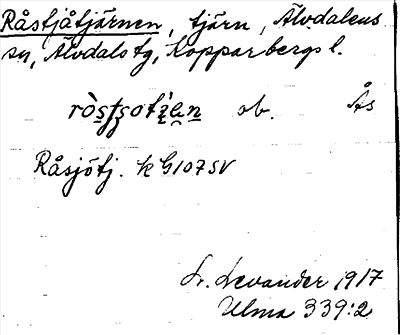 Råstjåtjärnen, tjärn, Älvdalens
sn, Älvdals tg, Kopparbergs l.
ob. Ås
Råsjötj. k G107SV
L. Levander 1917
Ulma 339:2